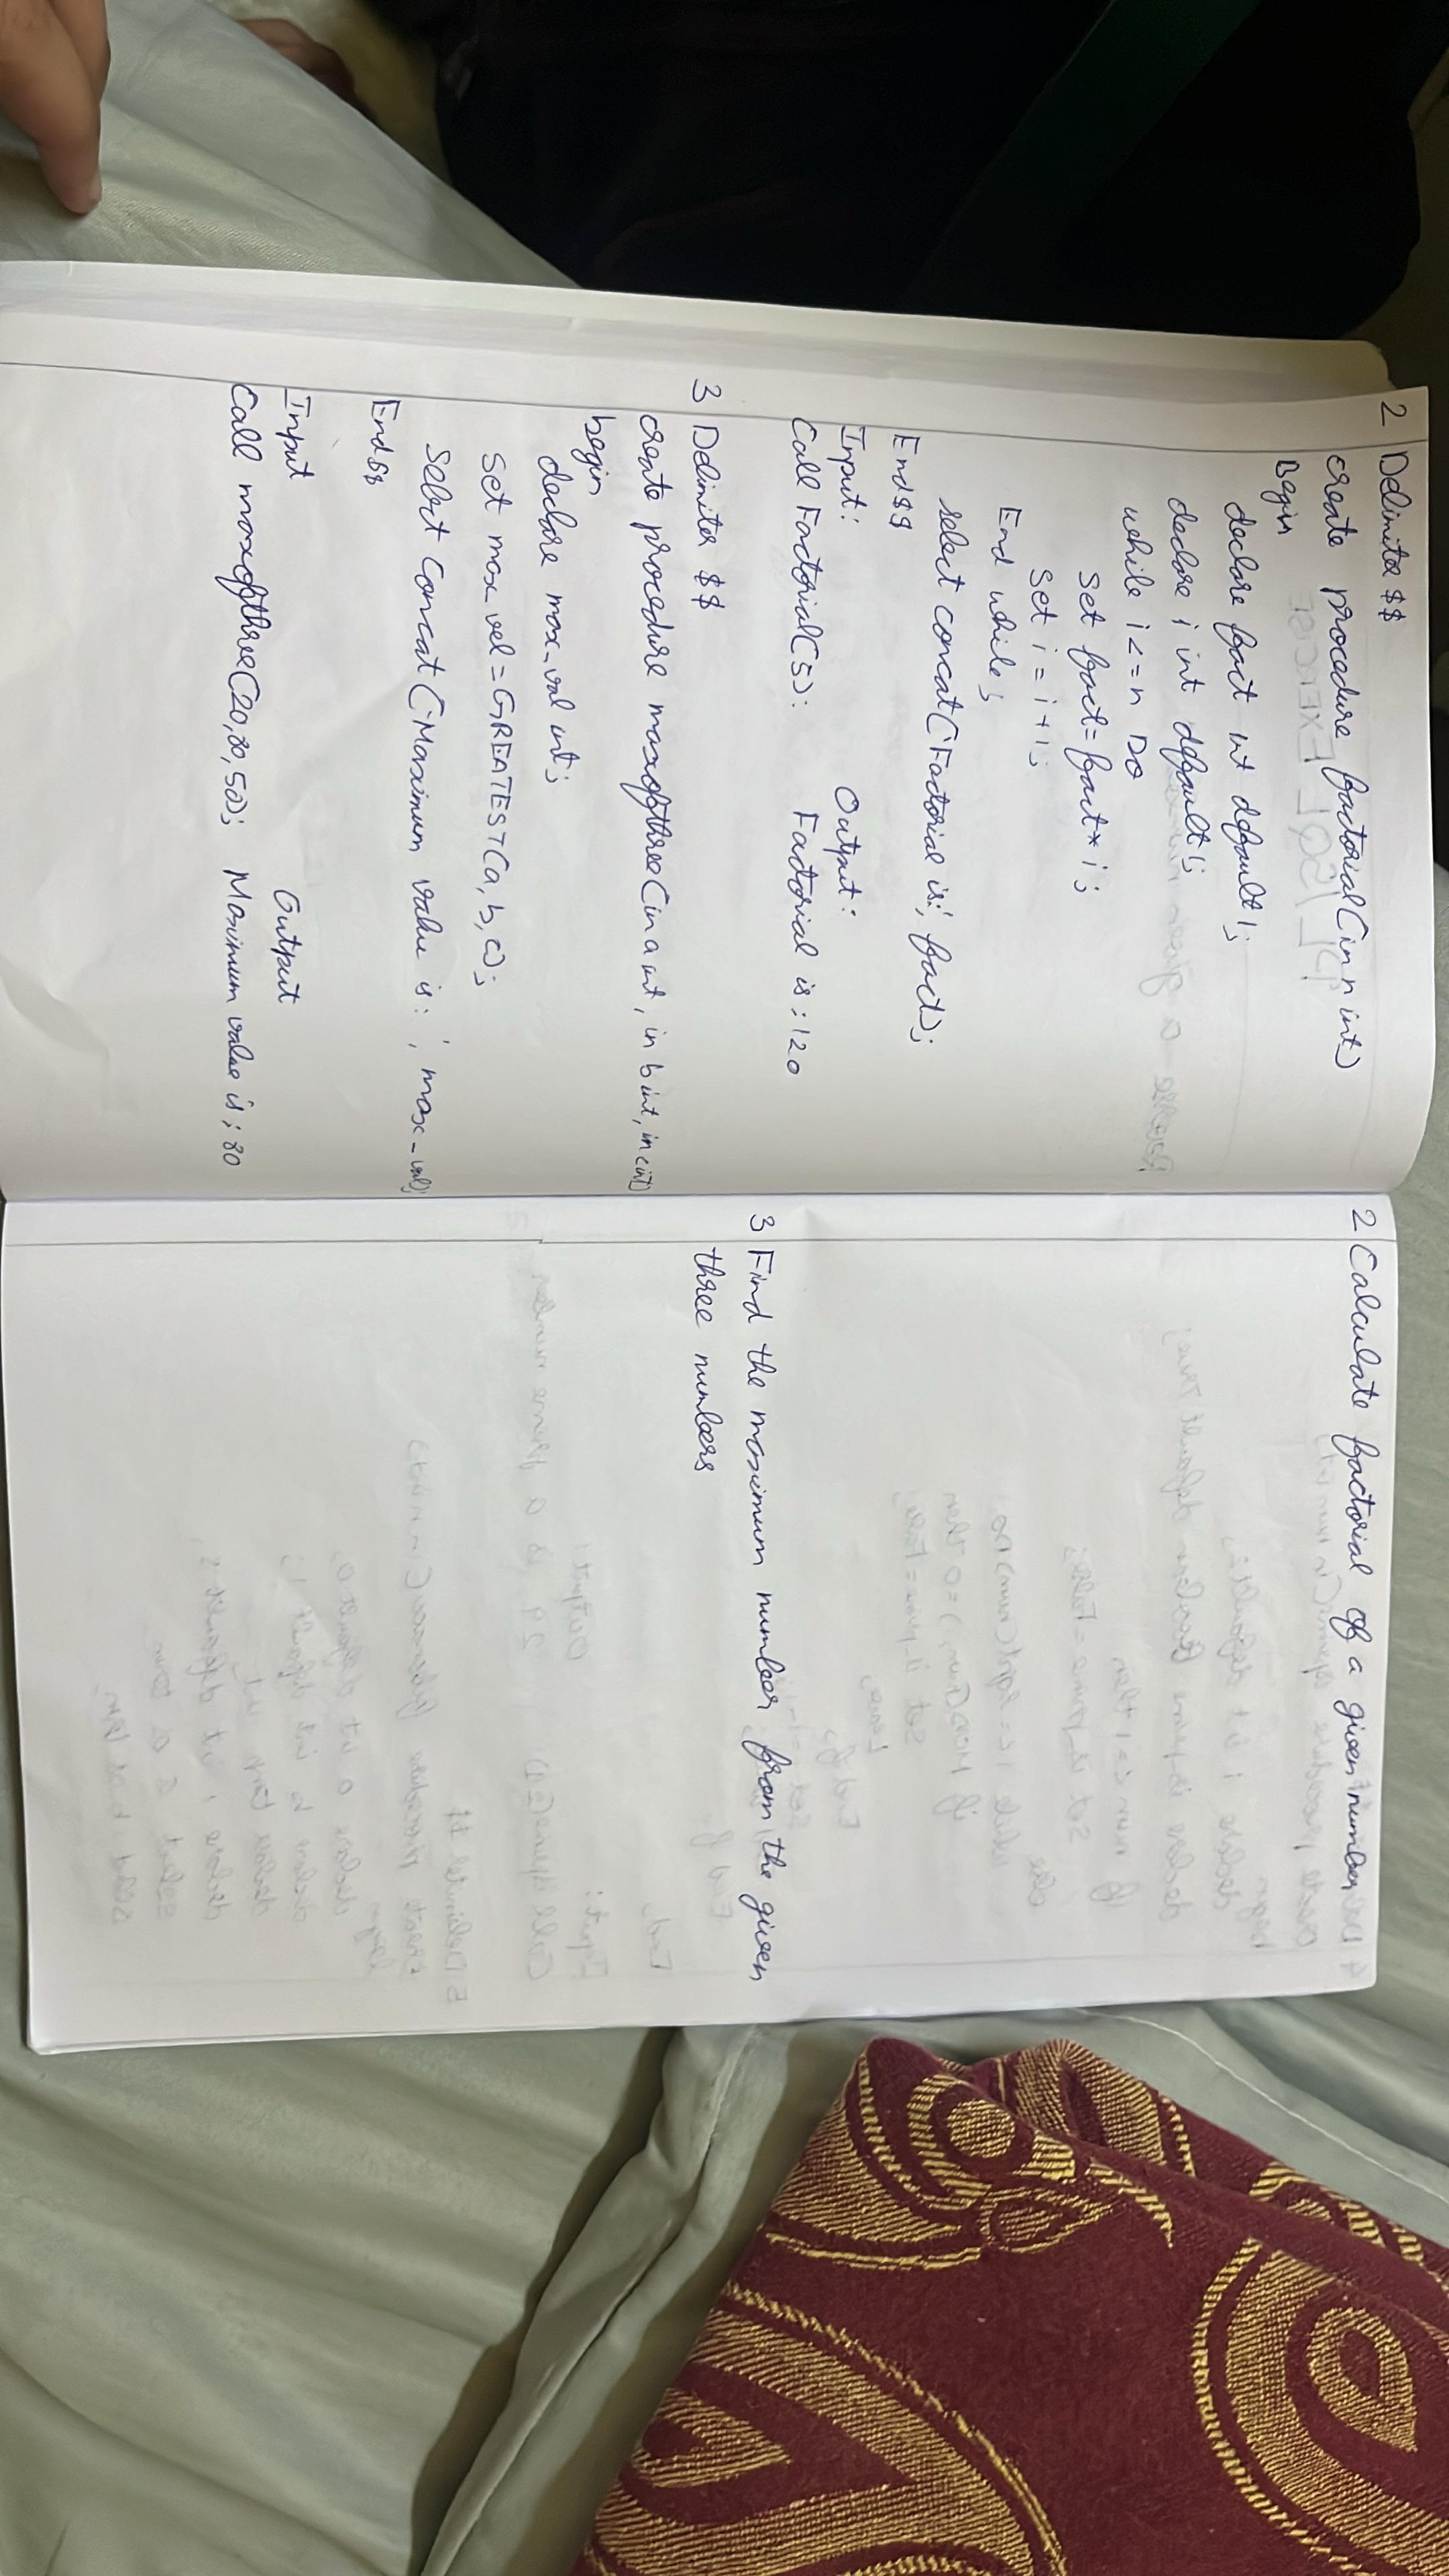 2 Delimiter $$
create procedure factorial(in n int)
Begin
declare fact int default 1;
declare i int default 1;
while i <= n Do
Set fact = fact * i;
Set i = i + 1;
End while;
select concat('Factorial is:', fact);
End $$
Input: Output:
Call Factorial(5): Factorial is : 120
3 Delimiter $$
create procedure maxofthree(in a int, in b int, in c int)
begin
declare max_val int;
Set max_vel = GREATEST(a, b, c);
Select concat('Maximum value is: ', max_val);
End $$
Input Output
Call maxofthree(20, 80, 50); Maximum value is ; 80
2 Calculate factorial of a given number
3 Find the maximum number from the given
three numbers